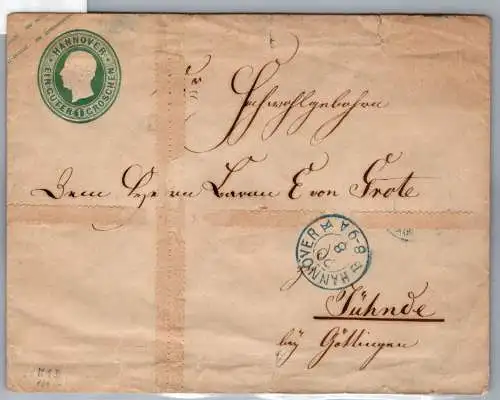 HANNOVER
EIN GUTERGROSCHEN
Sr Hochwohlgeboren
Dem Herrn Baron E von Grote
HANNOVER
6-9 A
8
HANNOVER
Jühnde
bey Göttingen